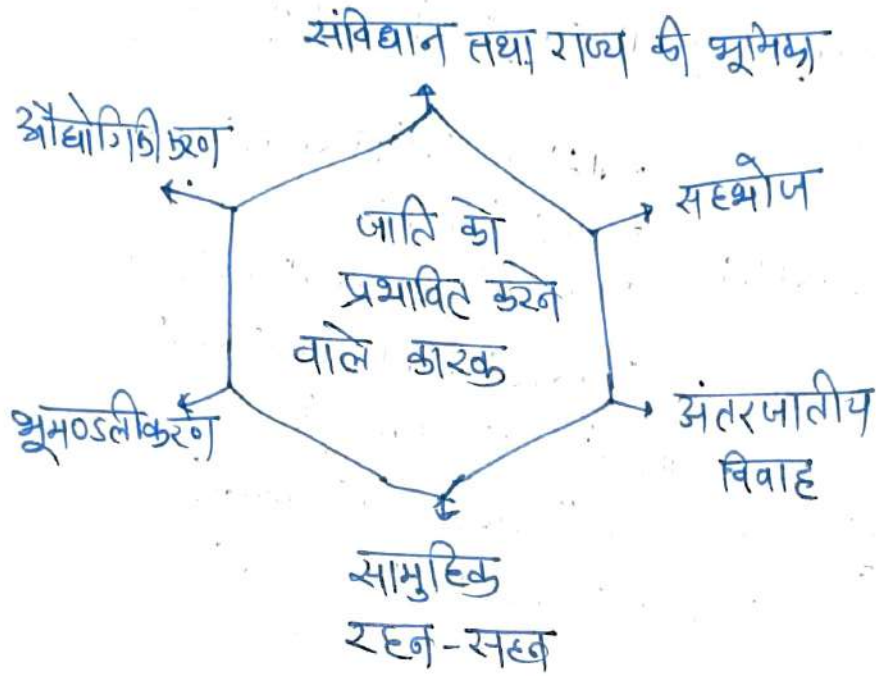 संविधान तथा राज्य की भूमिका
औद्योगिकीकरण
सहभोज
जाति को
प्रभावित करने
वाले कारक
भूमण्डलीकरण
अंतरजातीय
विवाह
सामुहिक
रहन-सहन